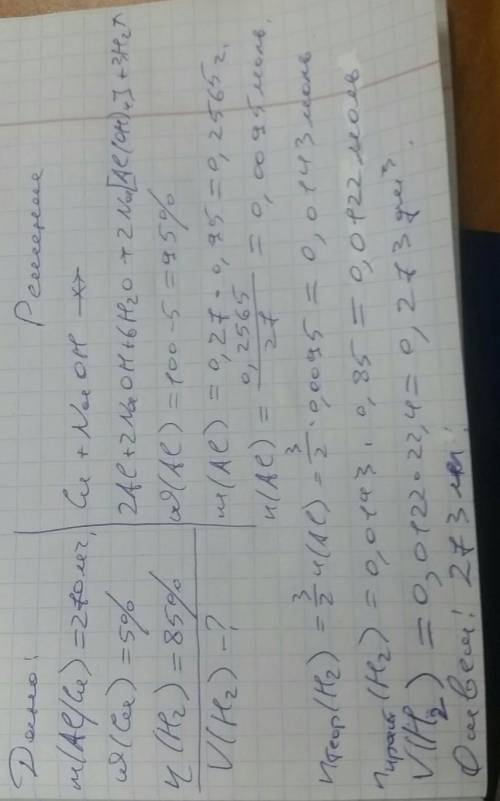 Дано:
m(Al/Cu) = 270 мг,
ω(Cu) = 5%
η(H₂) = 85%
V(H₂) - ?
Решение
Cu + NaOH -×→
2Al + 2NaOH + 6H₂O → 2Na[Al(OH)₄] + 3H₂↑
ω(Al) = 100 - 5 = 95%
m(Al) = 0,27 · 0,95 = 0,2565 г.
n(Al) = 0,2565/27 = 0,0095 моль.
nтеор(H₂) = 3/2 n(Al) = 3/2 · 0,0095 = 0,0143 моль
nпракт(H₂) = 0,0143 · 0,85 = 0,0122 моль
V(H₂) = 0,0122 · 22,4 = 0,273 дм³.
Ответ: 273 мл.